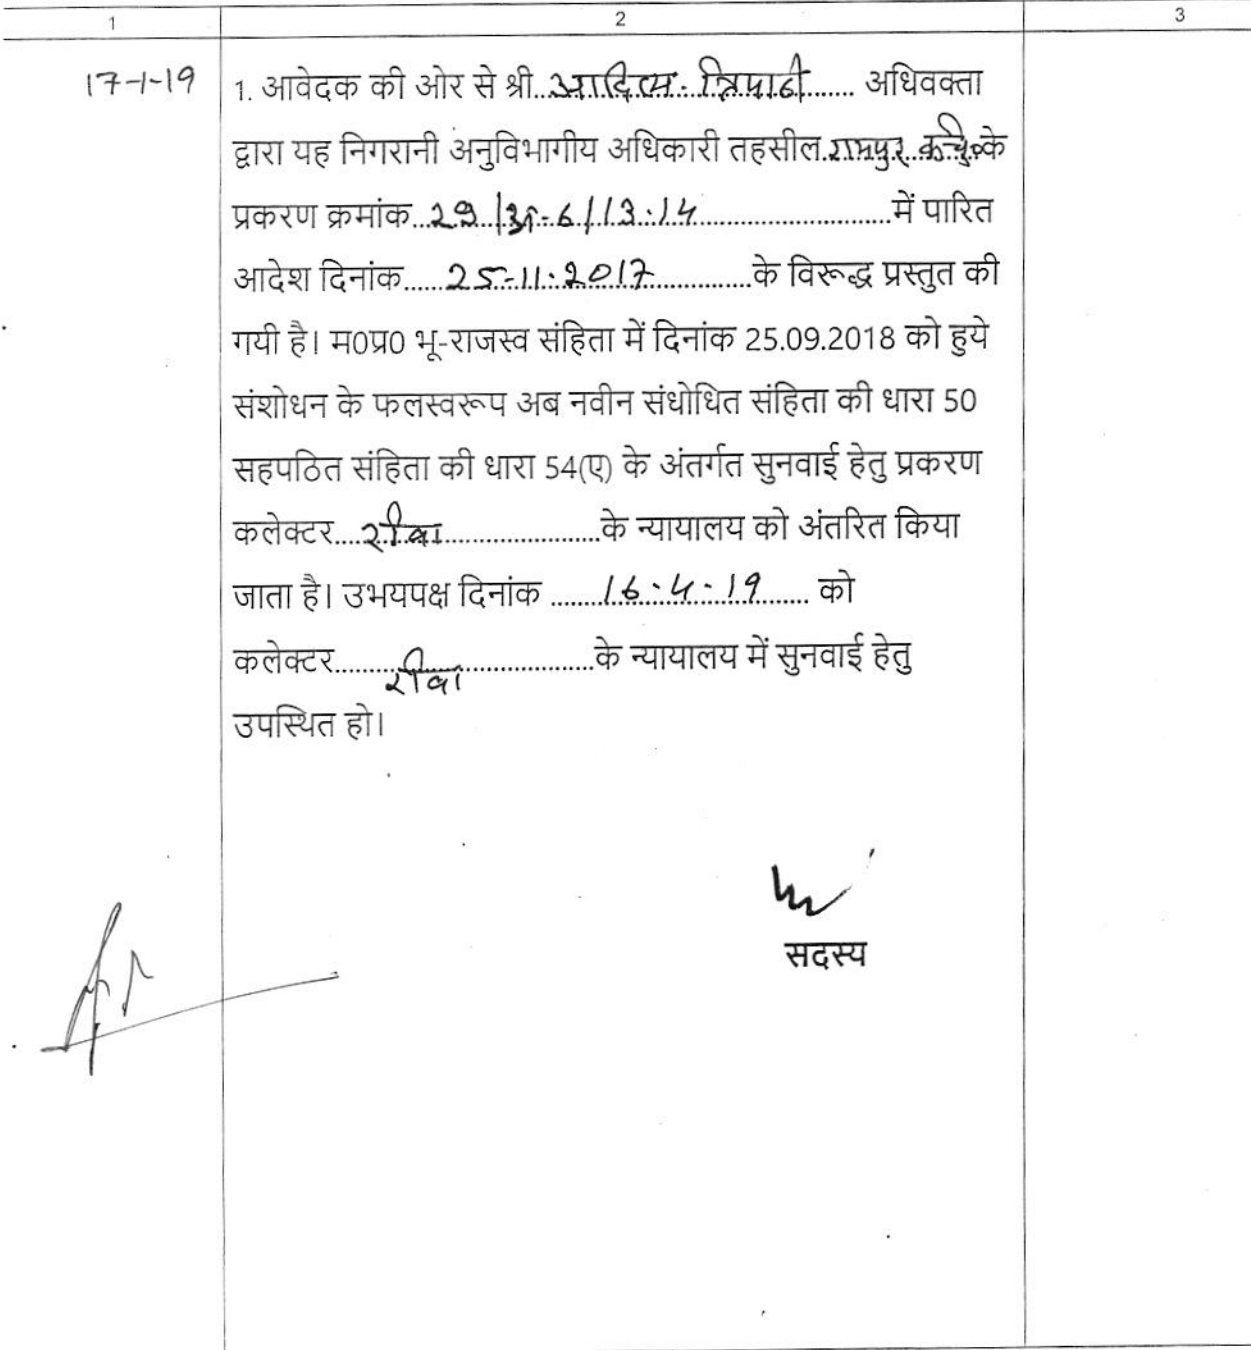 1 2 3
17-1-19
1. आवेदक की ओर से श्री...आदित्य त्रिपाठी....... अधिवक्ता
द्वारा यह निगरानी अनुविभागीय अधिकारी तहसील.रामपुर के
प्रकरण क्रमांक...29/अ-6/13-14....................में पारित
आदेश दिनांक......25-11-2017..............के विरूद्ध प्रस्तुत की
गयी है। म0प्र0 भू-राजस्व संहिता में दिनांक 25.09.2018 को हुये
संशोधन के फलस्वरूप अब नवीन संधोधित संहिता की धारा 50
सहपठित संहिता की धारा 54(ए) के अंतर्गत सुनवाई हेतु प्रकरण
कलेक्टर....रीवा......................के न्यायालय को अंतरित किया
जाता है। उभयपक्ष दिनांक ........16.4.19........ को
कलेक्टर..........रीवा...................के न्यायालय में सुनवाई हेतु
उपस्थित हो।
सदस्य